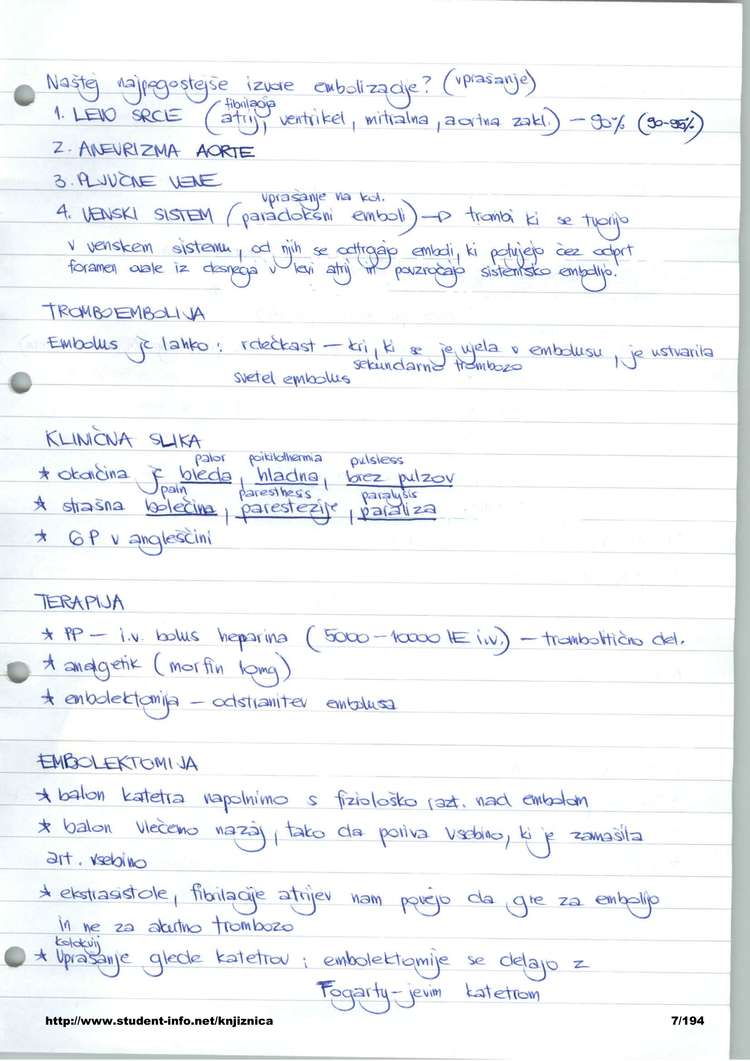 Naštej najpogostejše izvore embolizacije? (vprašanje)
fibrilacija
1. LEVO SRCE (atrij, ventrikel, mitralna, aortna zakl.) – 90% (90-95%)
2. ANEVRIZMA AORTE
3. PLJUČNE VENE
vprašanje na kol.
4. VENSKI SISTEM (paradoksni emboli) → trombi ki se tvorijo
v venskem sistemu, od njih se odtrgajo emboli, ki potujejo čez odprt
foramen ovale iz desnega v levi atrij in povzročajo sistemsko embolijo.
TROMBOEMBOLIJA
Embolus je lahko: rdečkast – kri, ki se je ujela v embolusu, je ustvarila
sekundarno trombozo
svetel embolus
KLINIČNA SLIKA
palor poikilothermia pulsless
* okončina je bleda, hladna, brez pulzov
pain paresthesis paralysis
* strašna bolečina, parestezije, paraliza
* 6P v angleščini
TERAPIJA
* PP – i.v. bolus heparina (5000 – 10000 IE i.v.) – trombolitično del.
* analgetik (morfin 10mg)
* embolektomija – odstranitev embolusa
EMBOLEKTOMIJA
* balon katetra napolnimo s fiziološko razt. nad embolom
* balon vlečemo nazaj, tako da poriva vsebino, ki je zamašila
art. vsebino
* ekstrasistole, fibrilacije atrijev nam povejo da gre za embolijo
in ne za akutno trombozo
kolokvij
* Vprašanje glede katetrov: embolektomije se delajo z
Fogarty-jevim katetrom
http://www.student-info.net/knjiznica 7/194